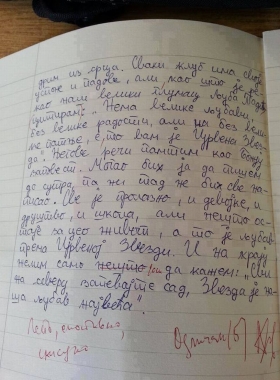 дрим из грша. Сваки клуб има своје
успоне и падове, али као што је ре-
као наш велики глумац Љуба Тадић
цитирам: "Нема велике љубави,
без велике радости, али ни без вели-
ке патње, е то вам је Црвена Звез-
да". Његове речи памтим као божју
заповест. Могао бих ја да пишем
до сутра, па ни тад не бих све на-
писао. Све је пролазно, и девојке, и
друштво, и школа, али нешто ос-
таје за цео живот, а то је љубав
према Црвеној Звезди. И на крају
желим само нешто да кажем: "Сви
на северу запевајте сад, Звезда је на-
ша љубав највећа".
Лепо, састав
Одличан (5)